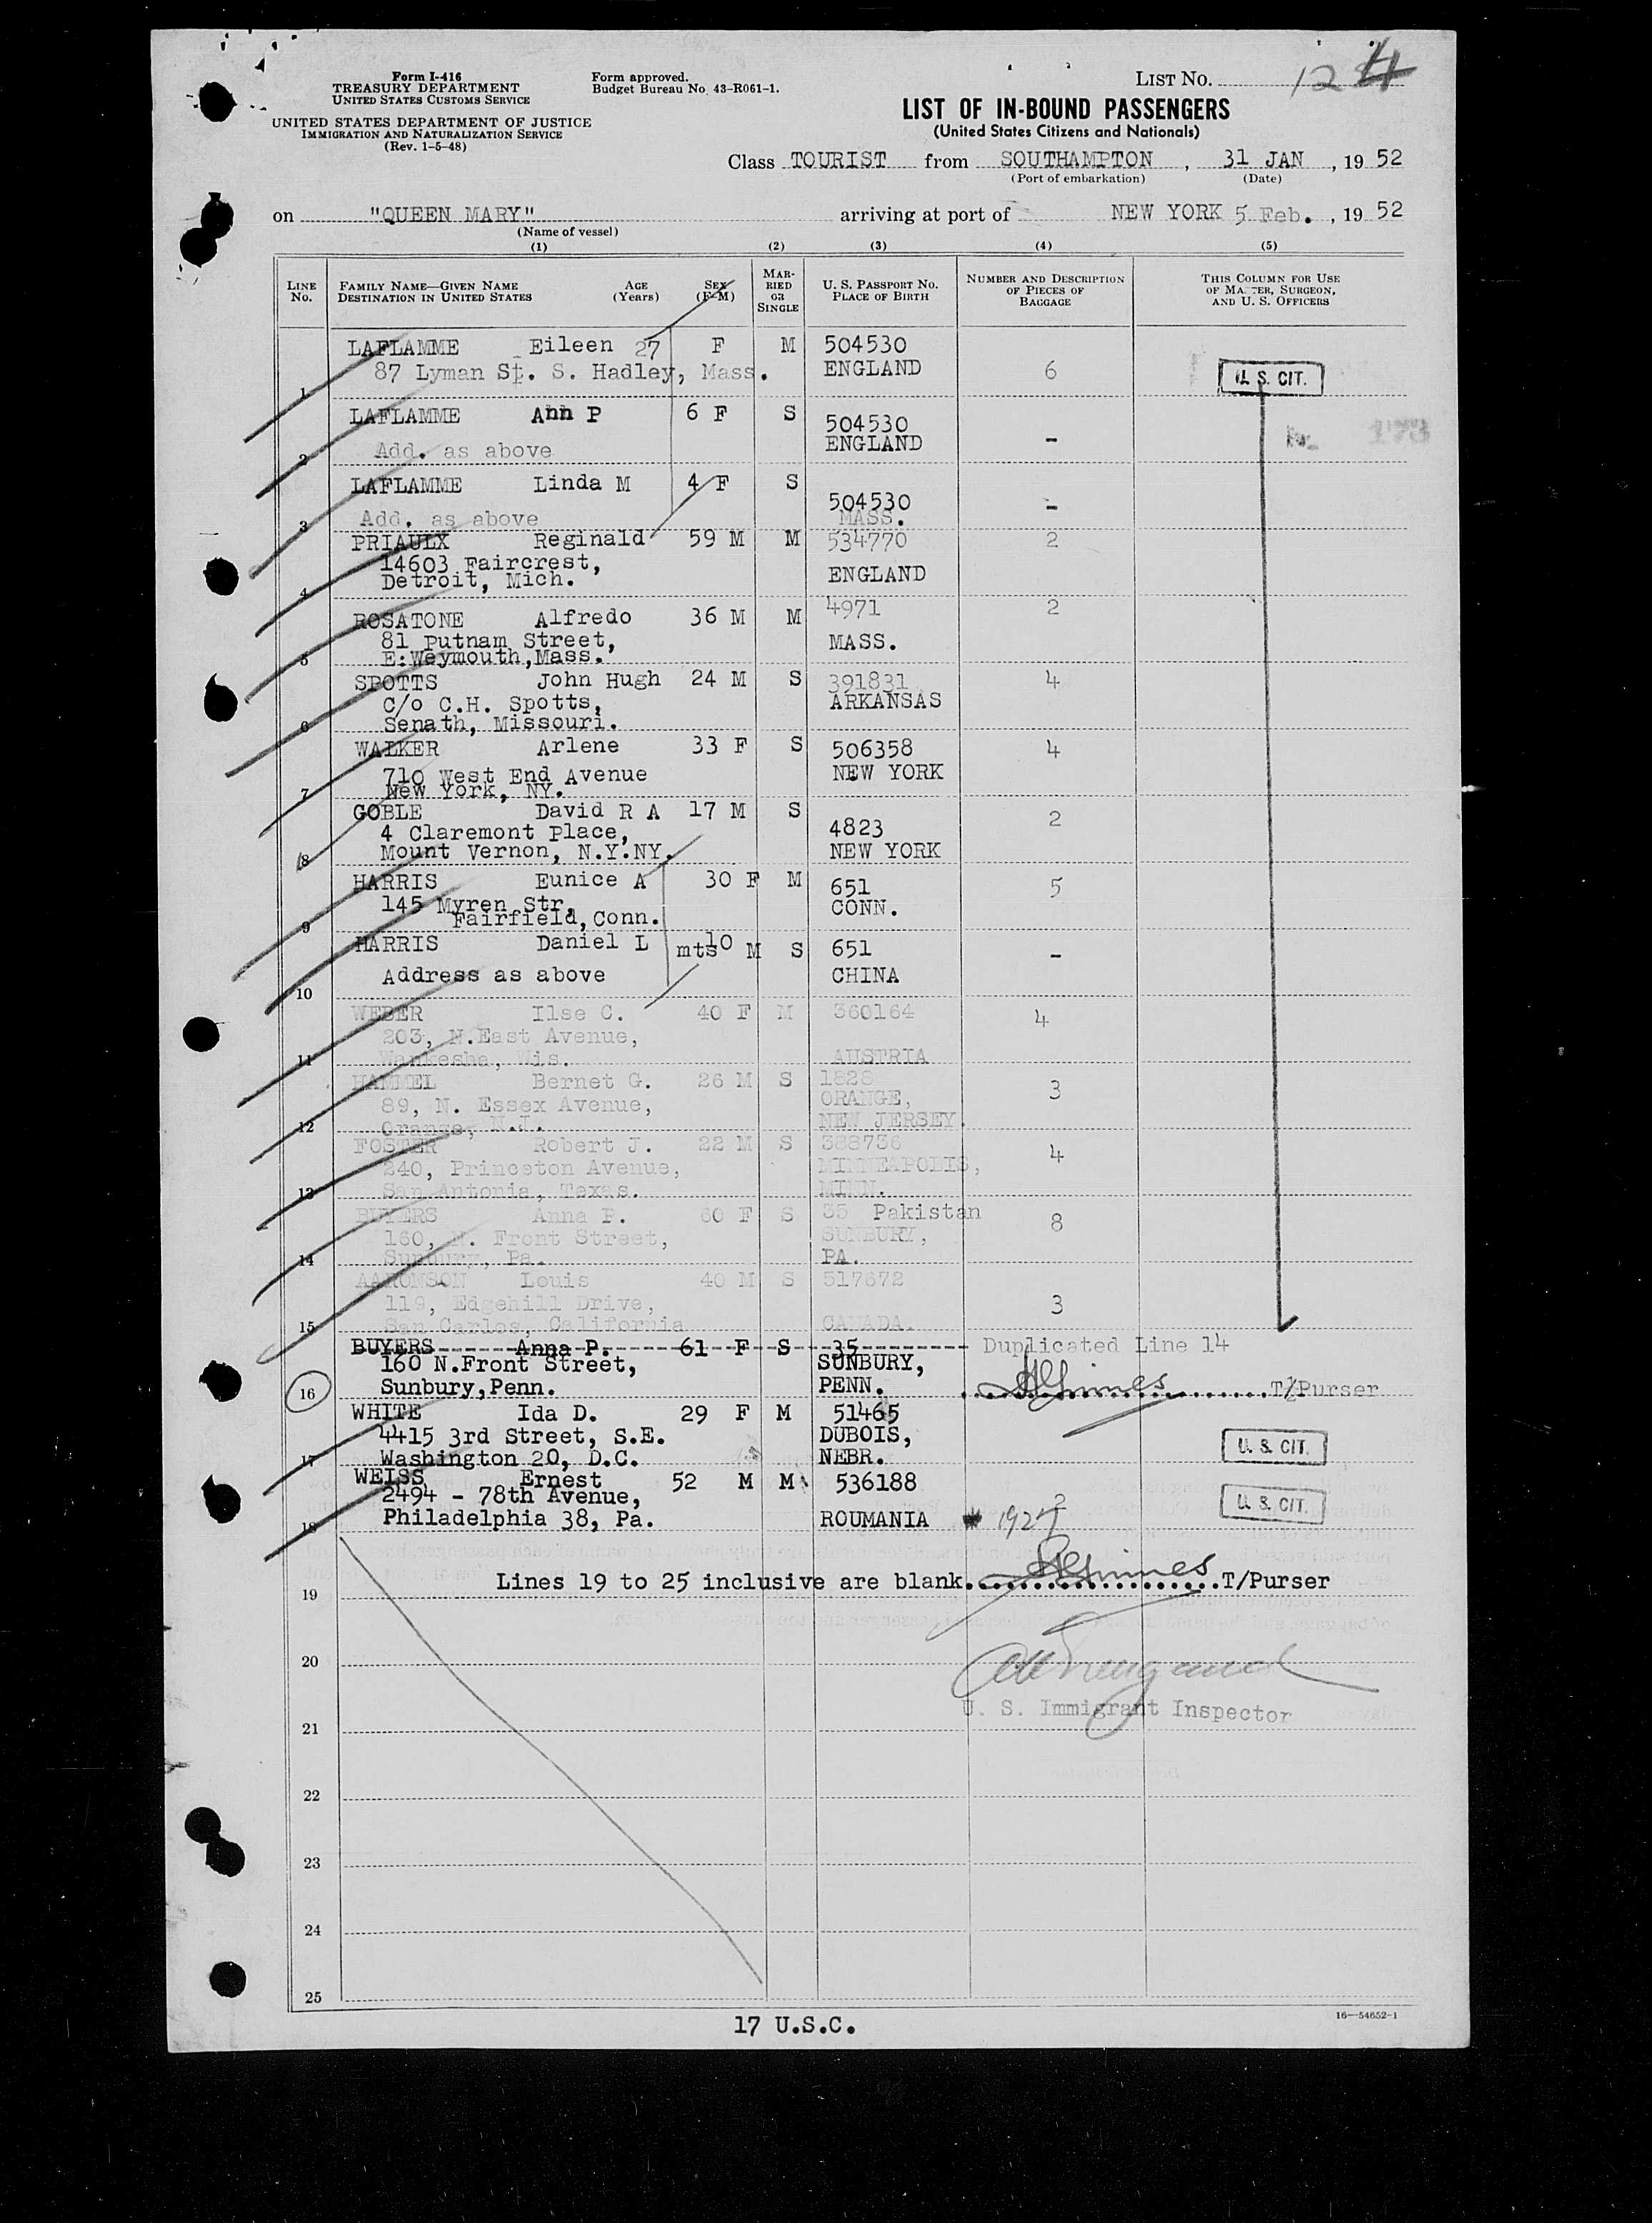 Form I-416
TREASURY DEPARTMENT
UNITED STATES CUSTOMS SERVICE
UNITED STATES DEPARTMENT OF JUSTICE
IMMIGRATION AND NATURALIZATION SERVICE
(Rev. 1-5-48)
Form approved.
Budget Bureau No. 43-R061-1.
LIST NO. 12
LIST OF IN-BOUND PASSENGERS
(United States Citizens and Nationals)
Class TOURIST from SOUTHAMPTON, 31 JAN, 1952
(Port of embarkation) (Date)
on "QUEEN MARY" arriving at port of NEW YORK 5 Feb., 1952
(Name of vessel)
(1) (2) (3) (4) (5)
LINE NO.
FAMILY NAME—GIVEN NAME
DESTINATION IN UNITED STATES
AGE (Years)
SEX (F-M)
MARRIED OR SINGLE
U. S. PASSPORT NO.
PLACE OF BIRTH
NUMBER AND DESCRIPTION OF PIECES OF BAGGAGE
THIS COLUMN FOR USE OF MA TER, SURGEON, AND U. S. OFFICERS
1 LAFLAMME Eileen 27 F M 504530 6
87 Lyman St. S. Hadley, Mass. ENGLAND
U. S. CIT.
2 LAFLAMME Ann P 6 F S 504530 -
Add. as above ENGLAND
173
3 LAFLAMME Linda M 4 F S 504530 -
Add. as above MASS.
4 PRIAULX Reginald 59 M M 534770 2
14603 Faircrest, ENGLAND
Detroit, Mich.
5 ROSATONE Alfredo 36 M M 4971 2
81 Putnam Street, MASS.
E:Weymouth,Mass.
6 SPOTTS John Hugh 24 M S 391831 4
C/o C.H. Spotts, ARKANSAS
Senath, Missouri.
7 WALKER Arlene 33 F S 506358 4
710 West End Avenue NEW YORK
New York, NY.
8 GOBLE David R A 17 M S 4823 2
4 Claremont Place,
Mount Vernon, N.Y.NY. NEW YORK
9 HARRIS Eunice A 30 F M 651 5
145 Myren Str, CONN.
Fairfield,Conn.
10 HARRIS Daniel L mts10 M S 651 -
Address as above CHINA
11 WEBER Ilse C. 40 F M 360164 4
203, N.East Avenue,
Wankesha, Wis. AUSTRIA
12 HAMMEL Bernet G. 26 M S 1828 3
89, N. Essex Avenue, ORANGE,
Orange, N.J. NEW JERSEY.
13 FOSTER Robert J. 22 M S 388736 4
240, Princeton Avenue, MINNEAPOLIS,
San Antonia, Texas. MINN.
14 BUYERS Anna P. 60 F S 35 Pakistan 8
160, N. Front Street, SUNBURY,
Sunbury, Pa. PA.
15 AARONSON Louis 40 M S 517672 3
119, Edgehill Drive,
San Carlos, California CANADA.
16 BUYERS Anna P. 61 F S 35 Duplicated Line 14
160 N.Front Street, SUNBURY,
Sunbury,Penn. PENN. T/Purser
17 WHITE Ida D. 29 F M 51465
4415 3rd Street, S.E. DUBOIS,
Washington 20, D.C. NEBR.
U. S. CIT.
18 WEISS Ernest 52 M M 536188
2494 - 78th Avenue,
Philadelphia 38, Pa. ROUMANIA 1927
U. S. CIT.
19 Lines 19 to 25 inclusive are blank. T/Purser
20
U. S. Immigrant Inspector
21
22
23
24
25
17 U.S.C.
16—54652-1